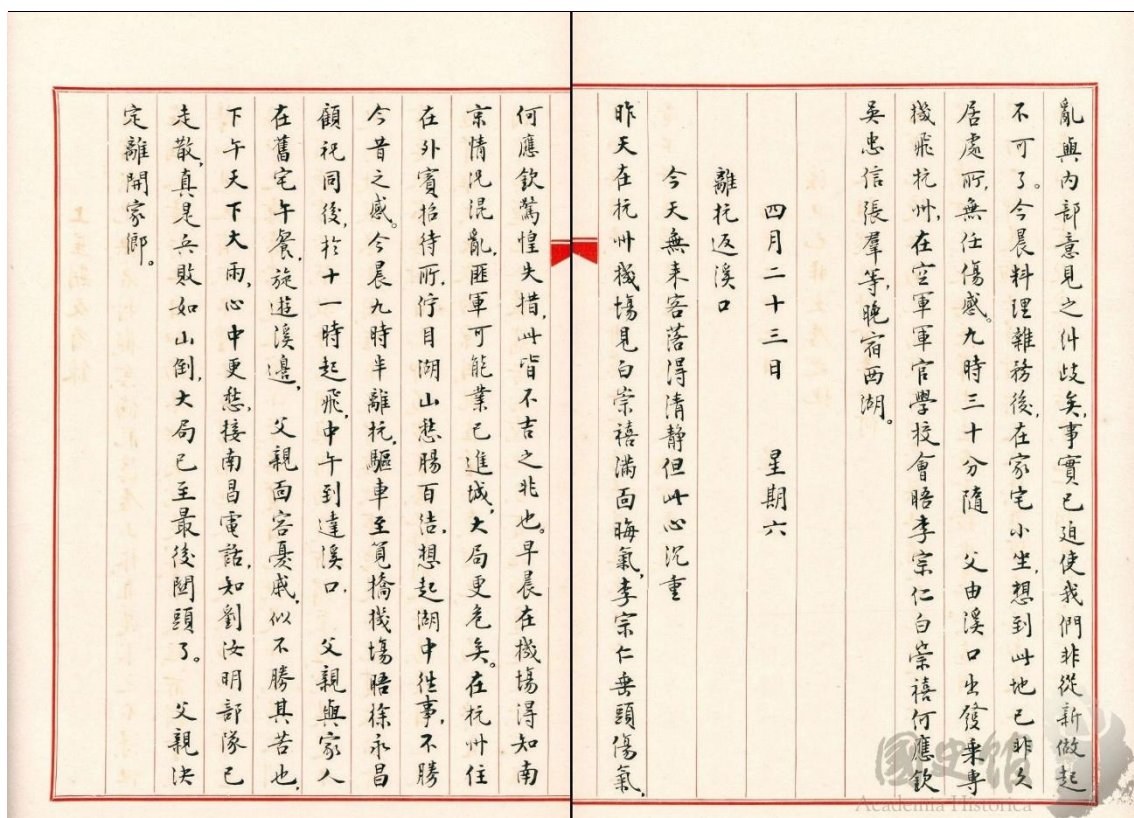 亂與內部意見之份歧矣,事實已迫使我們非從新做起
不可了。今晨料理雜務後,在家宅小坐,想到此地已非久
居處所,無任傷感。九時三十分隨 父由溪口出發乘專
機飛杭州,在空軍軍官學校會晤李宗仁白崇禧何應欽
吳忠信張羣等,晚宿西湖。
四月二十三日 星期六
離杭返溪口
今天無來客落得清靜但此心沉重
昨天在杭州機場見白崇禧滿面晦氣,李宗仁垂頭傷氣,
何應欽驚惶失措,此皆不吉之兆也。早晨在機場得知南
京情況混亂,匪軍可能業已進城,大局更危矣。在杭州住
在外賓招待所,佇目湖山愁腸百結,想起湖中往事,不勝
今昔之感。今晨九時半離杭,驅車至筧橋機場晤徐永昌
顧祝同後,於十一時起飛,中午到達溪口, 父親與家人
在舊宅午餐,旋遊溪邊, 父親面容憂戚,似不勝其苦也,
下午天下大雨,心中更愁,接南昌電話,知劉汝明部隊已
走散,真是兵敗如山倒,大局已至最後關頭了。 父親決
定離開家鄉。
國史館
Academia Historica